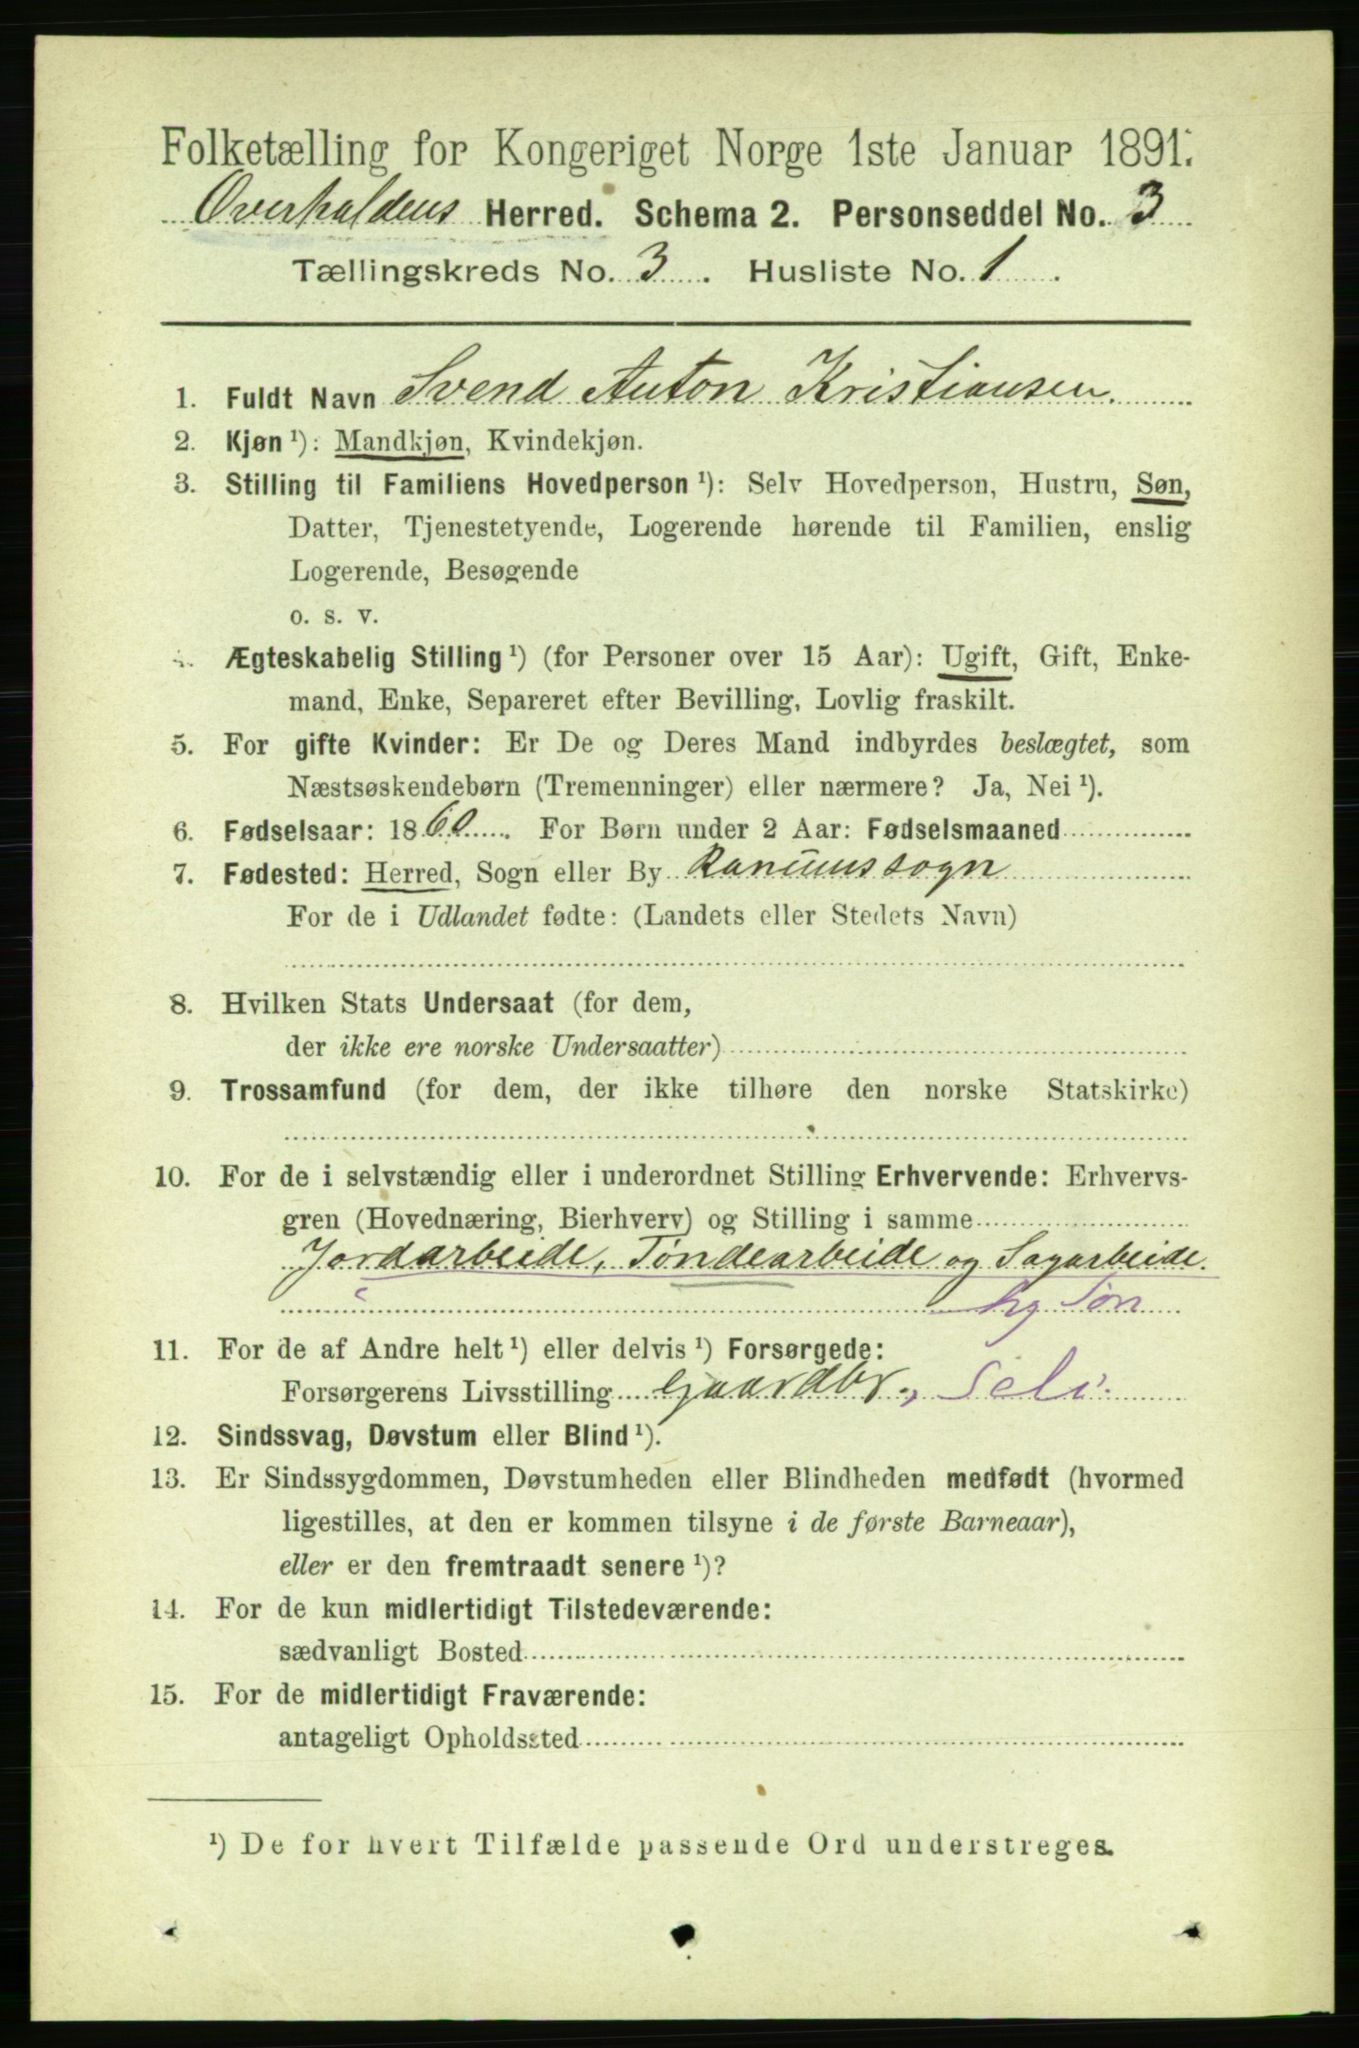 Folketælling for Kongeriget Norge 1ste Januar 1891.
Overhaldens Herred. Schema 2. Personseddel No. 3
Tællingskreds No. 3. Husliste No. 1.
1. Fuldt Navn Svend Anton Kristiansen.
2. Kjøn ¹): Mandkjøn, Kvindekjøn.
3. Stilling til Familiens Hovedperson ¹): Selv Hovedperson, Hustru, Søn,
Datter, Tjenestetyende, Logerende hørende til Familien, enslig
Logerende, Besøgende
o. s. v.
4. Ægteskabelig Stilling ¹) (for Personer over 15 Aar): Ugift, Gift, Enke-
mand, Enke, Separeret efter Bevilling, Lovlig fraskilt.
5. For gifte Kvinder: Er De og Deres Mand indbyrdes beslægtet, som
Næstsøskendebørn (Tremenninger) eller nærmere? Ja, Nei ¹).
6. Fødselsaar: 1860. For Børn under 2 Aar: Fødselsmaaned
7. Fødested: Herred, Sogn eller By Ranums sogn
For de i Udlandet fødte: (Landets eller Stedets Navn)
8. Hvilken Stats Undersaat (for dem,
der ikke ere norske Undersaatter)
9. Trossamfund (for dem, der ikke tilhøre den norske Statskirke)
10. For de i selvstændig eller i underordnet Stilling Erhvervende: Erhvervs-
gren (Hovednæring, Bierhverv) og Stilling i samme
Jordarbeide, Tøndearbeide og Sagarbeide.
hg Søn
11. For de af Andre helt ¹) eller delvis ¹) Forsørgede:
Forsørgerens Livsstilling Gaardbr., Selv.
12. Sindssvag, Døvstum eller Blind ¹).
13. Er Sindssygdommen, Døvstumheden eller Blindheden medfødt (hvormed
ligestilles, at den er kommen tilsyne i de første Barneaar),
eller er den fremtraadt senere ¹)?
14. For de kun midlertidigt Tilstedeværende:
sædvanligt Bosted
15. For de midlertidigt Fraværende:
antageligt Opholdssted
¹) De for hvert Tilfælde passende Ord understreges.